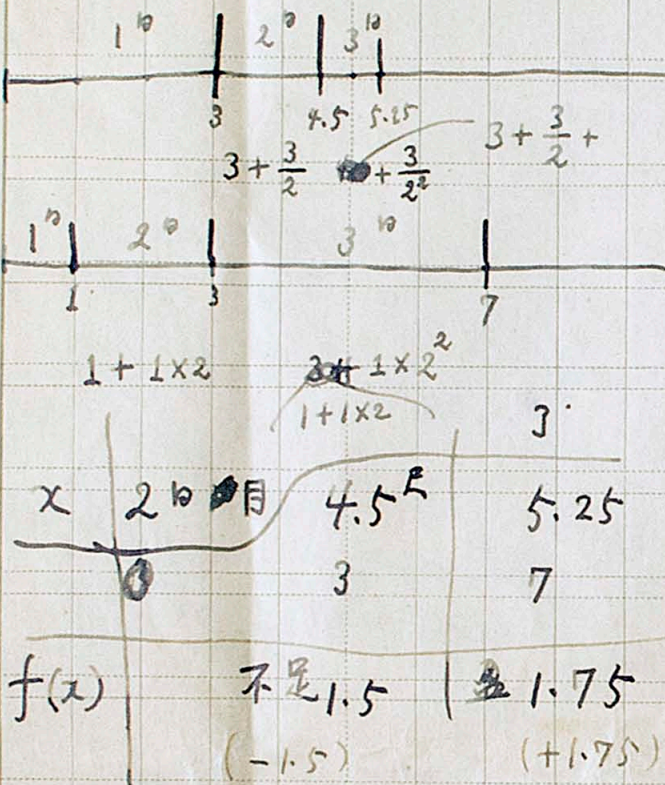 1日 2日 3日
3 4.5 5.25
3 + 3/2 + 3/2² 3 + 3/2 +
1日 2日 3日
1 3 7
1 + 1×2 1×2²
1+1×2
3
x 2日目 4.5尺 5.25
3 7
f(x) 不足1.5 盈1.75
(-1.5) (+1.75)